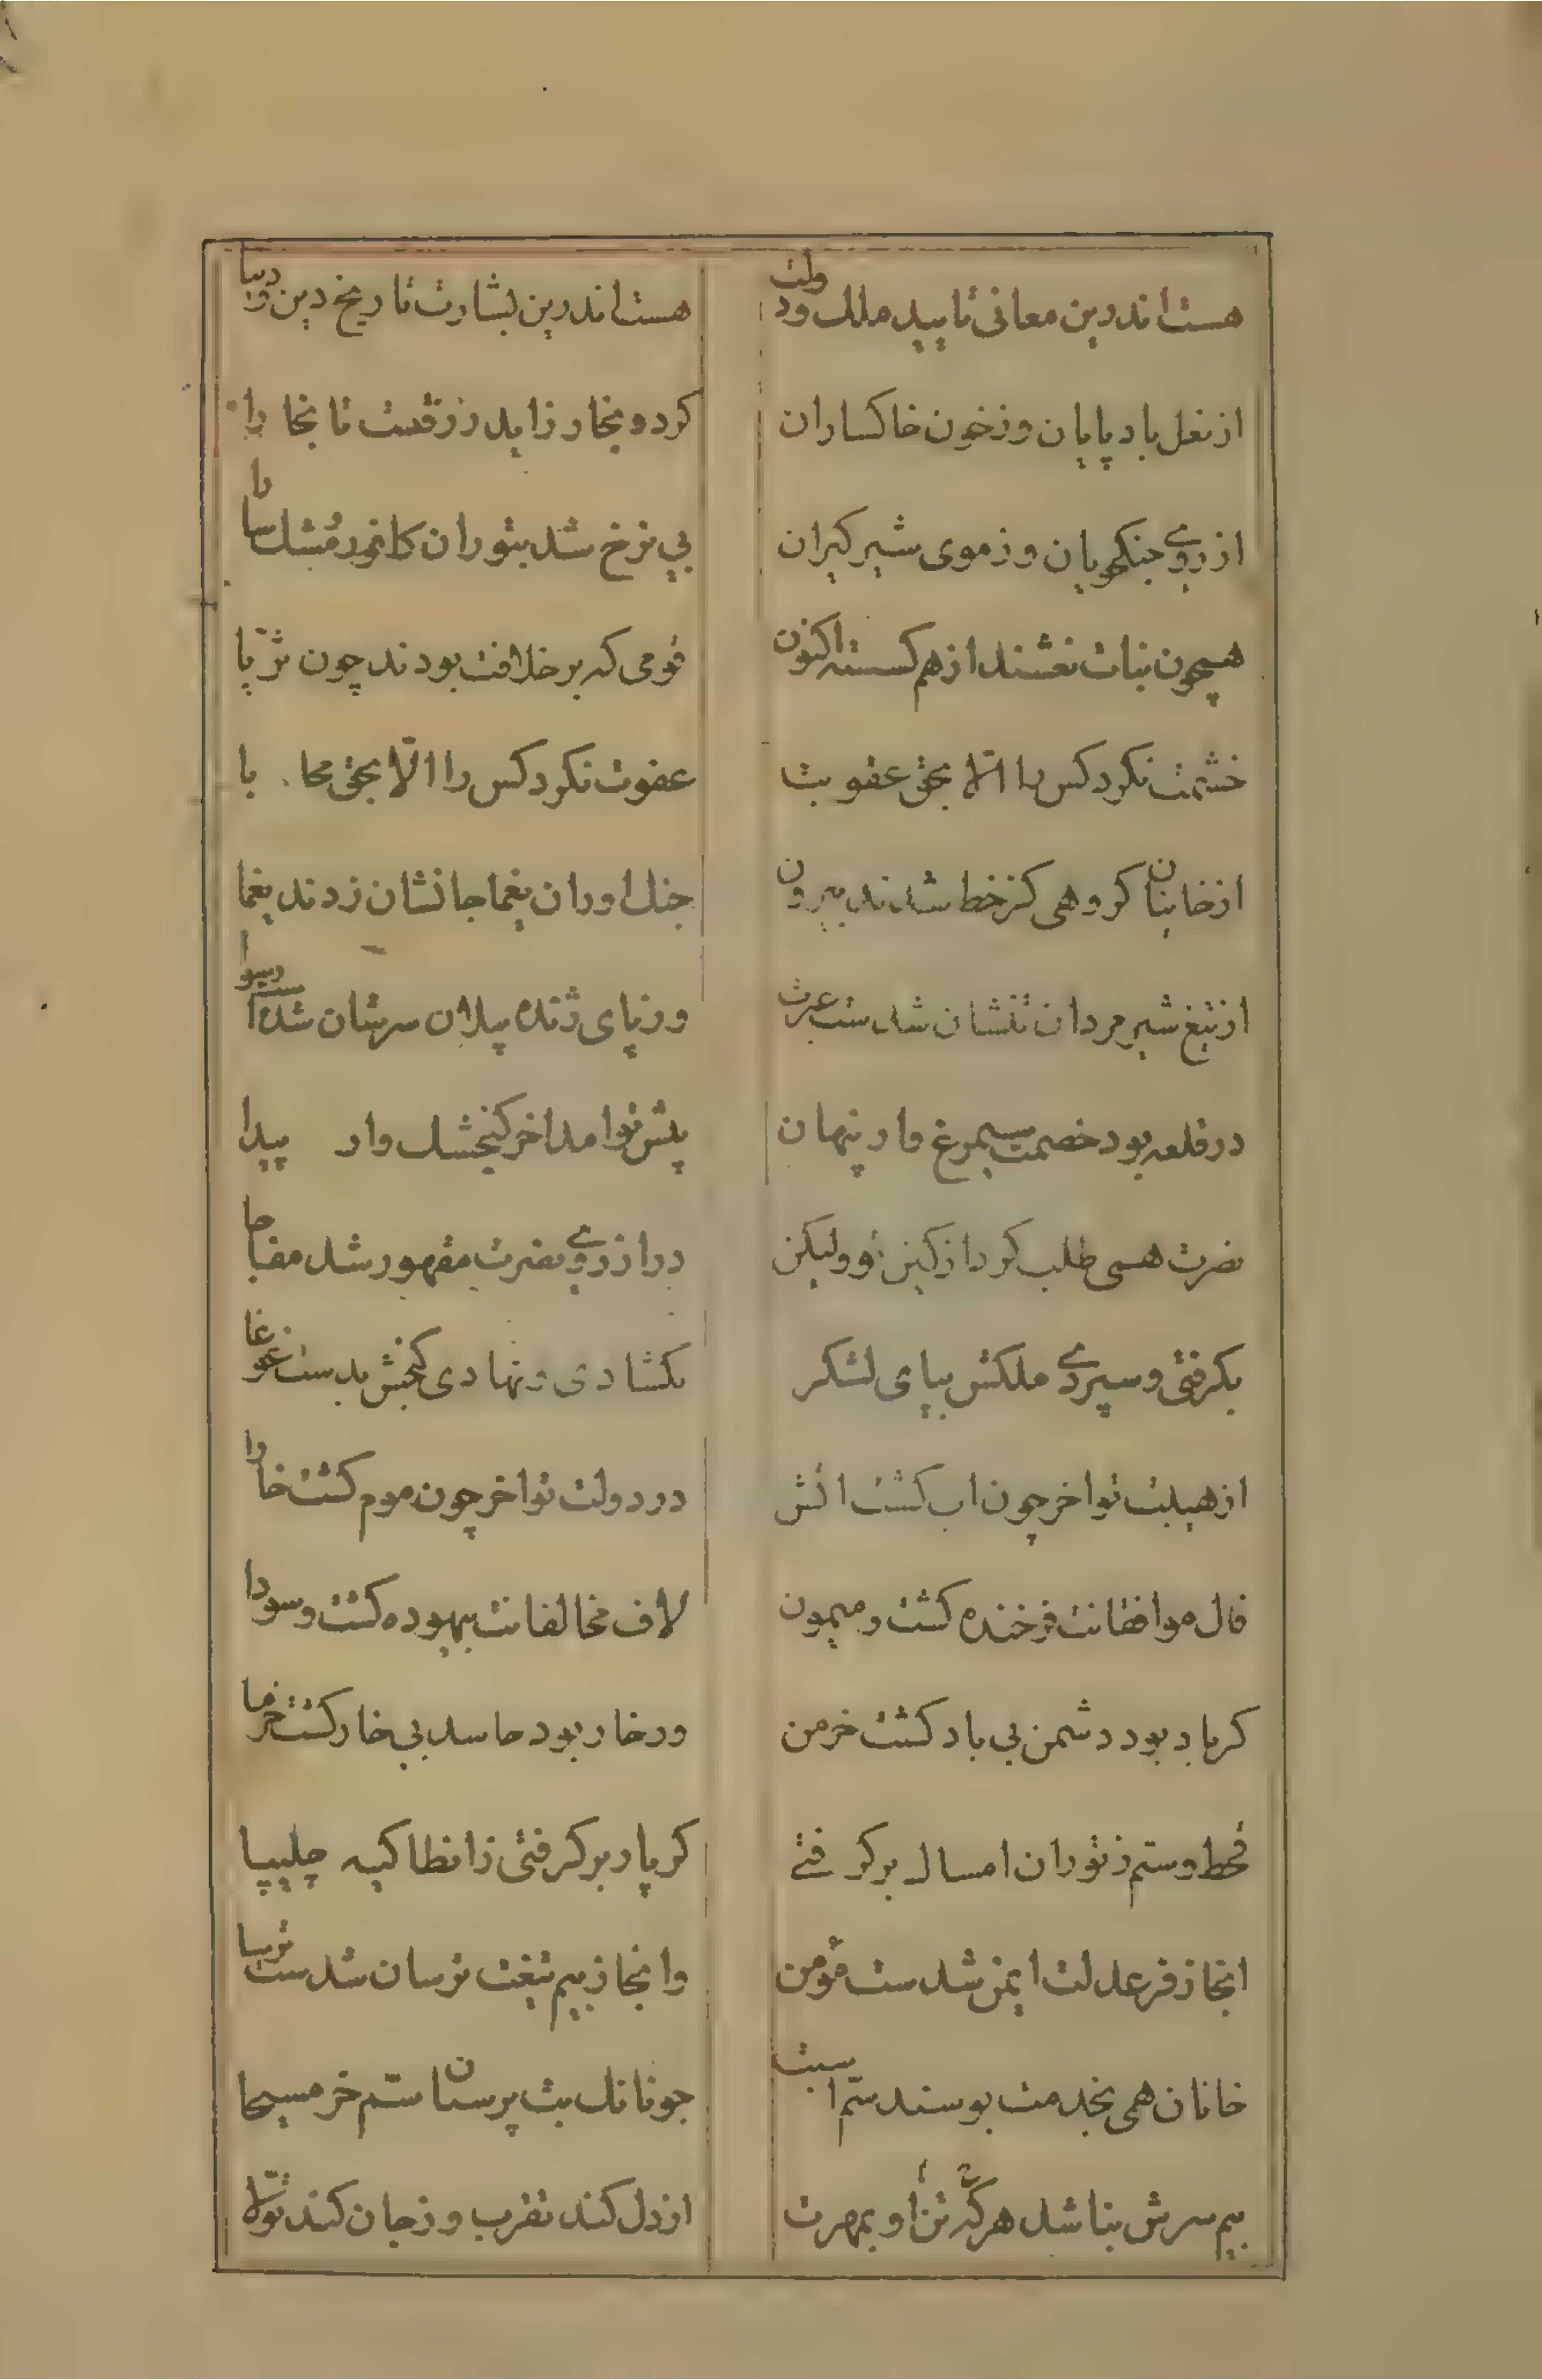 هست اندرین معانی تایید ملک و دولت
هست اندرین بشارت تاریخ دین و دنیا
از نعل بادپایان وز خون خاکساران
کرد و بخار زاید زرقست تا بخارا
از روی جنکجویان وز موی شیرکیران
بی نرخ شد بتوران کافور و مشک سارا
همچون بنات نعشند از هم کسسته اکنون
قومی که بر خلافت بودند چون ثریا
خشمت نکرد کس را الا بحق عقوبت
عفوت نکرد کس را الا بحق محابا
از خانیان کروهی کز خط شدند بیرون
جنک اوران یغما جانشان زدند یغما
از تیغ شیرمردان تنشان شدست عبرت
وز پای ژنده پیلان سرشان شده رسوا
در قلعه بود خصمت سیمرغ وار پنهان
پیش تو امد اخر کنجشک وار پیدا
نصرت همی طلب کرد از کین تو ولیکن
درا ز روی نصرت مقهور شد مفاجا
بکرفتی و سپردی ملکش بپای لشکر
بکشادی و نهادی کنجش بدست غوغا
از هیبت تو اخر چون اب کشت اتش
در دولت تو اخر چون موم کشت خارا
فال موافقانت فرخنده کشت و میمون
لاف مخالفانت بیهوده کشت و سودا
کر باد بود دشمن بی باد کشت خرمن
ور خار بود حاسد بی خار کشت خرما
قحط و ستم ز توران امسال بر کرفتی
کر پار بر کرفتی ز انطاکیه چلیپا
اینجا ز فر عدلت ایمن شدست مؤمن
وانجا ز بیم تیغت ترسان شدست ترسا
خانان همی بخدمت بوسند سم اسبت
چونانک بت پرستان سم خر مسیحا
بیم سرش نباشد هرکه تن او بمهرت
از دل کند تقرب وز جان کند تولا